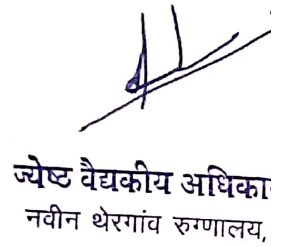 ज्येष्ठ वैद्यकीय अधिका
नवीन थेरगांव रुग्णालय,